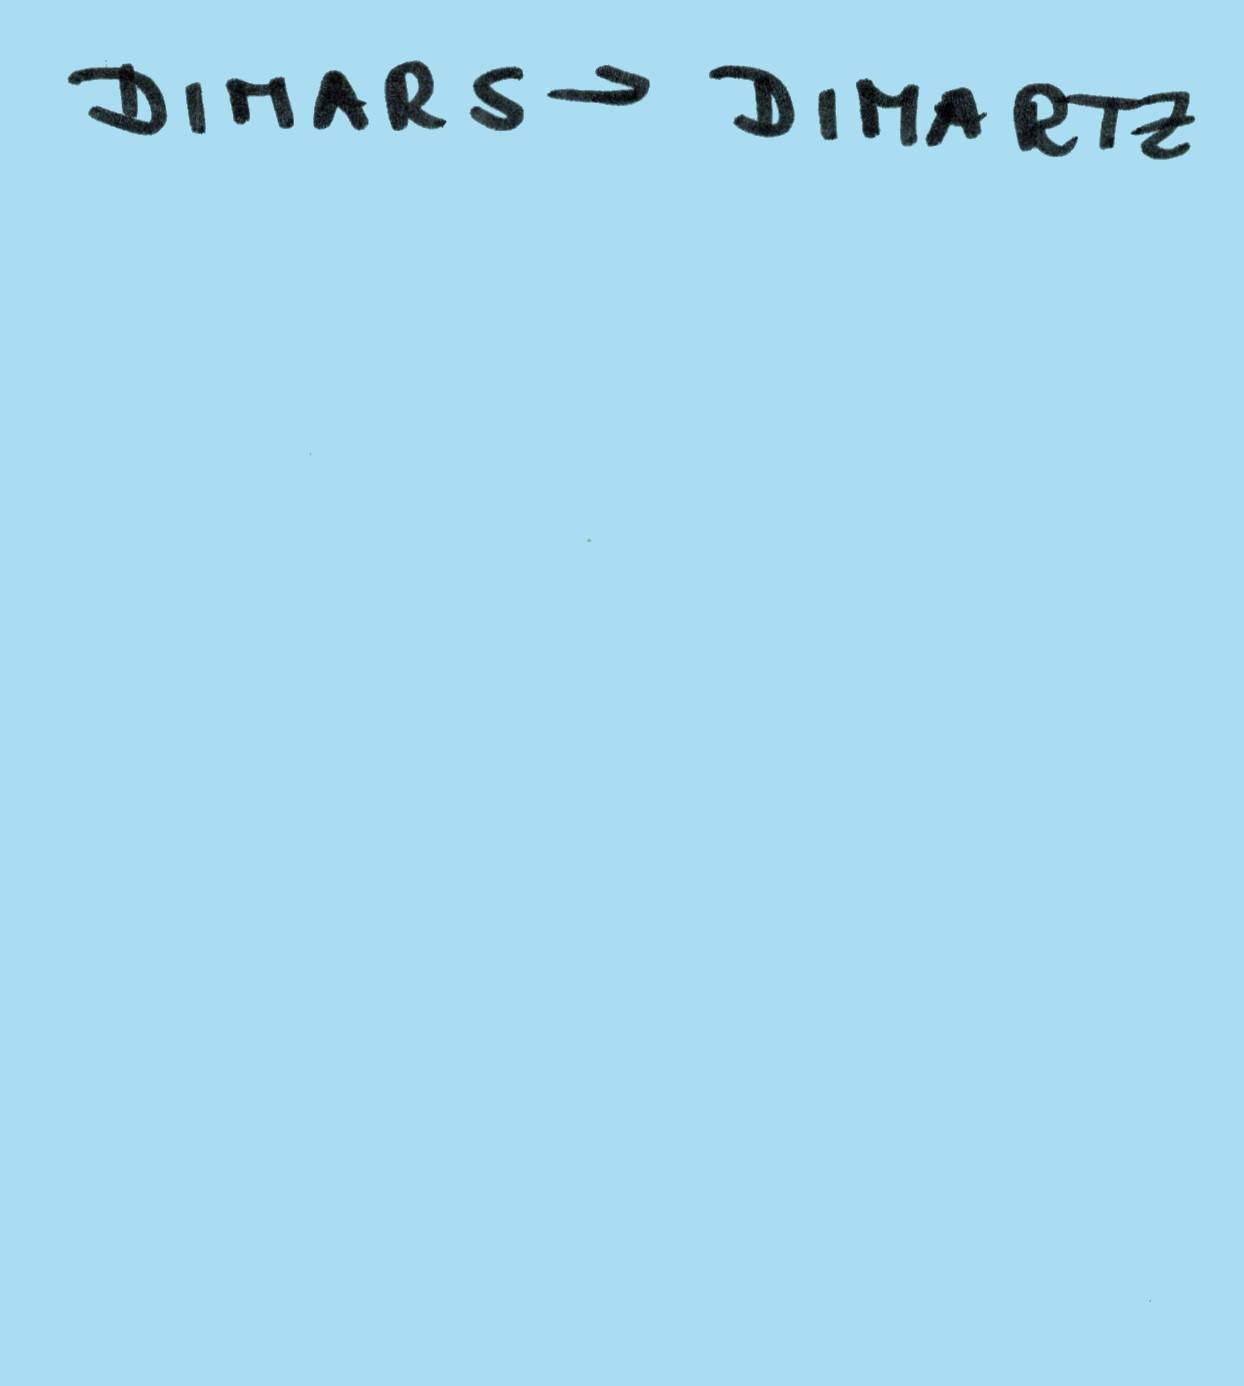 DIMARS → DIMARTZ